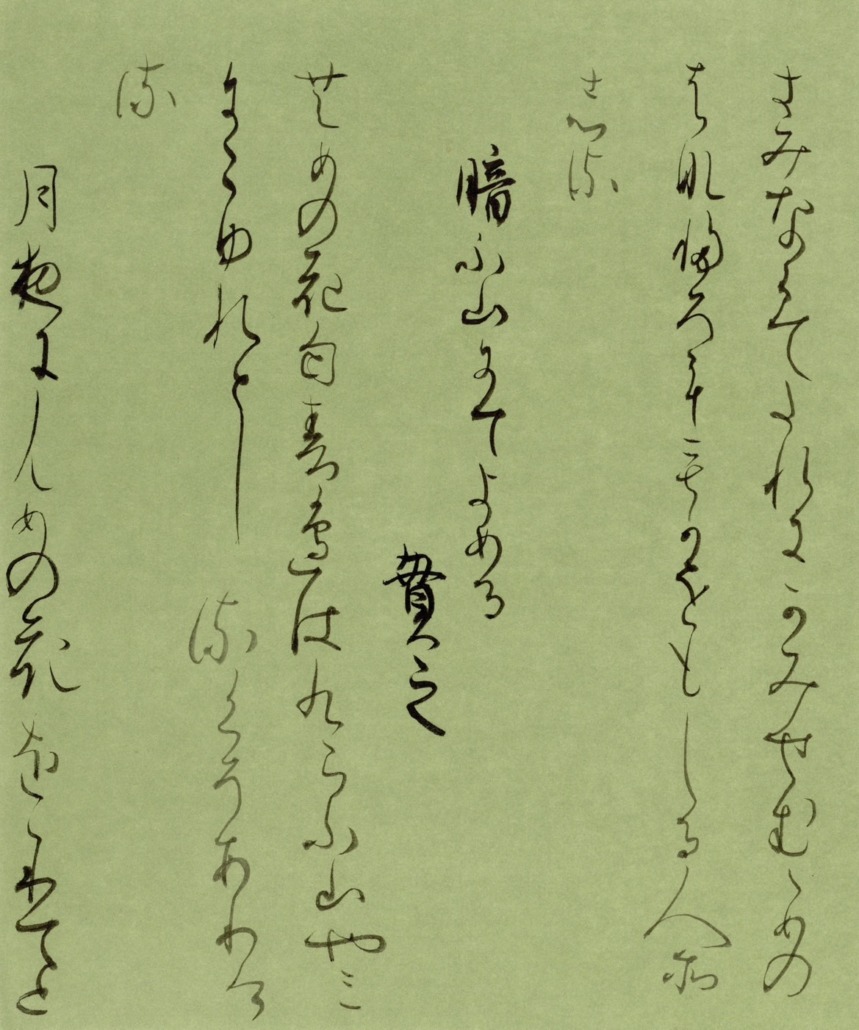 きみならてたれにかみせむゝめの
はないろをもかをもしる人そ
しる
暗不山にてよめる
貫之
むめの花匂春邊はくらふ山やみ
にこゆれとしるくそありけ
る
月夜にむめの花をゝりてと